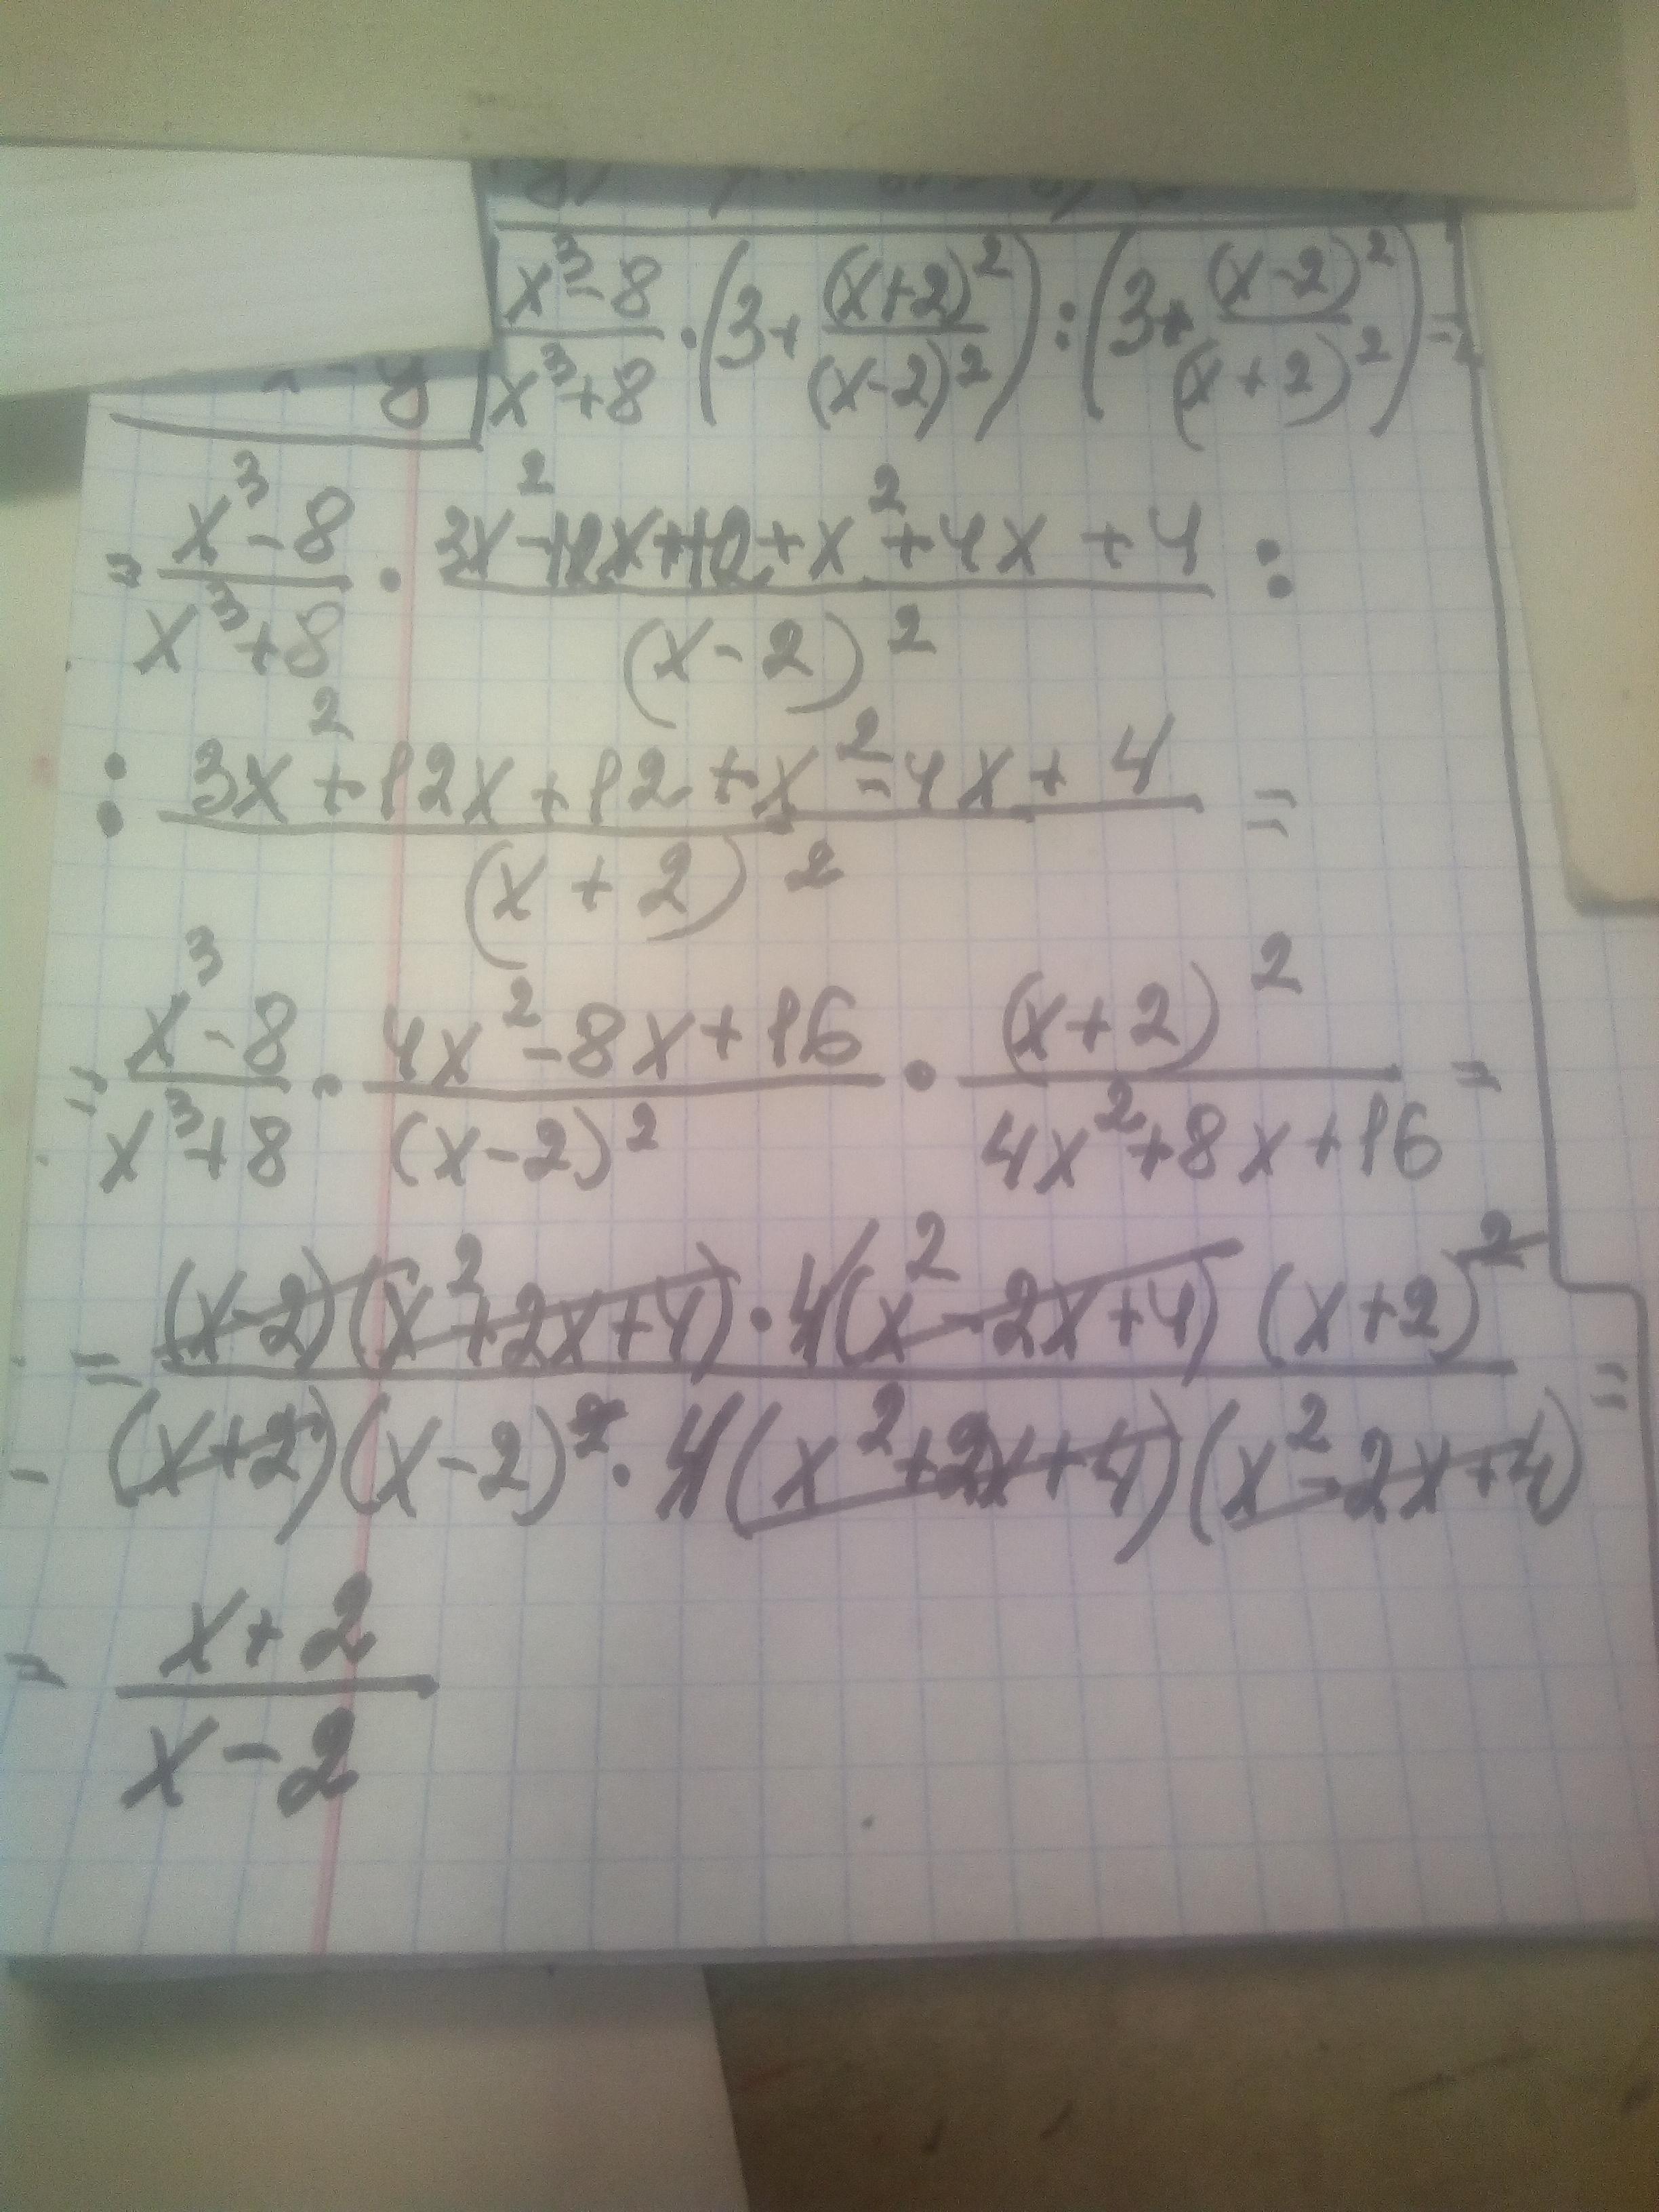 x³-8/x³+8 · (3+(x+2)²/(x-2)²) : (3+(x-2)²/(x+2)²) =
x - y
= x³-8/x³+8 · 3x²-12x+12+x²+4x+4/(x-2)² :
: 3x²+12x+12+x²-4x+4/(x+2)² =
= x³-8/x³+8 · 4x²-8x+16/(x-2)² · (x+2)²/4x²+8x+16 =
= (x-2)(x²+2x+4)·4(x²-2x+4)(x+2)²/(x+2)(x-2)²·4(x²+2x+4)(x²-2x+4) =
= x+2/x-2